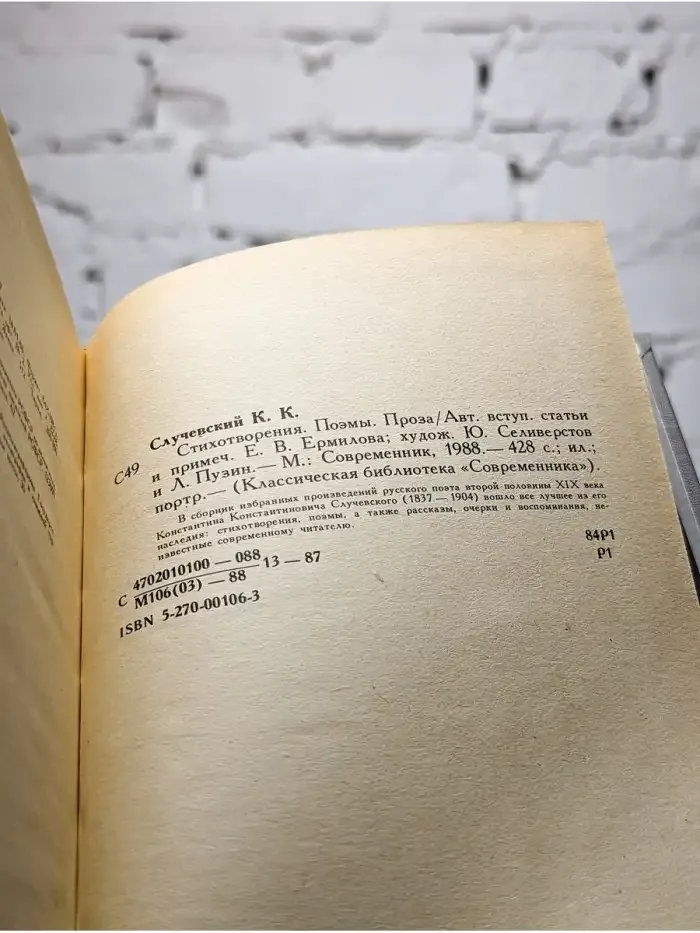 Случевский К. К.
С49 Стихотворения. Поэмы. Проза/Авт. вступ. статьи
и примеч. Е. В. Ермилова; худож. Ю. Селиверстов
и Л. Пузин.— М.: Современник, 1988.— 428 с.; ил.;
портр.— (Классическая библиотека «Современника»).
В сборник избранных произведений русского поэта второй половины XIX века
Константина Константиновича Случевского (1837—1904) вошло все лучшее из его
наследия: стихотворения, поэмы, а также рассказы, очерки и воспоминания, не-
известные современному читателю.
С 4702010100—088
М106(03)—88 13—87
84Р1
Р1
ISBN 5-270-00106-3